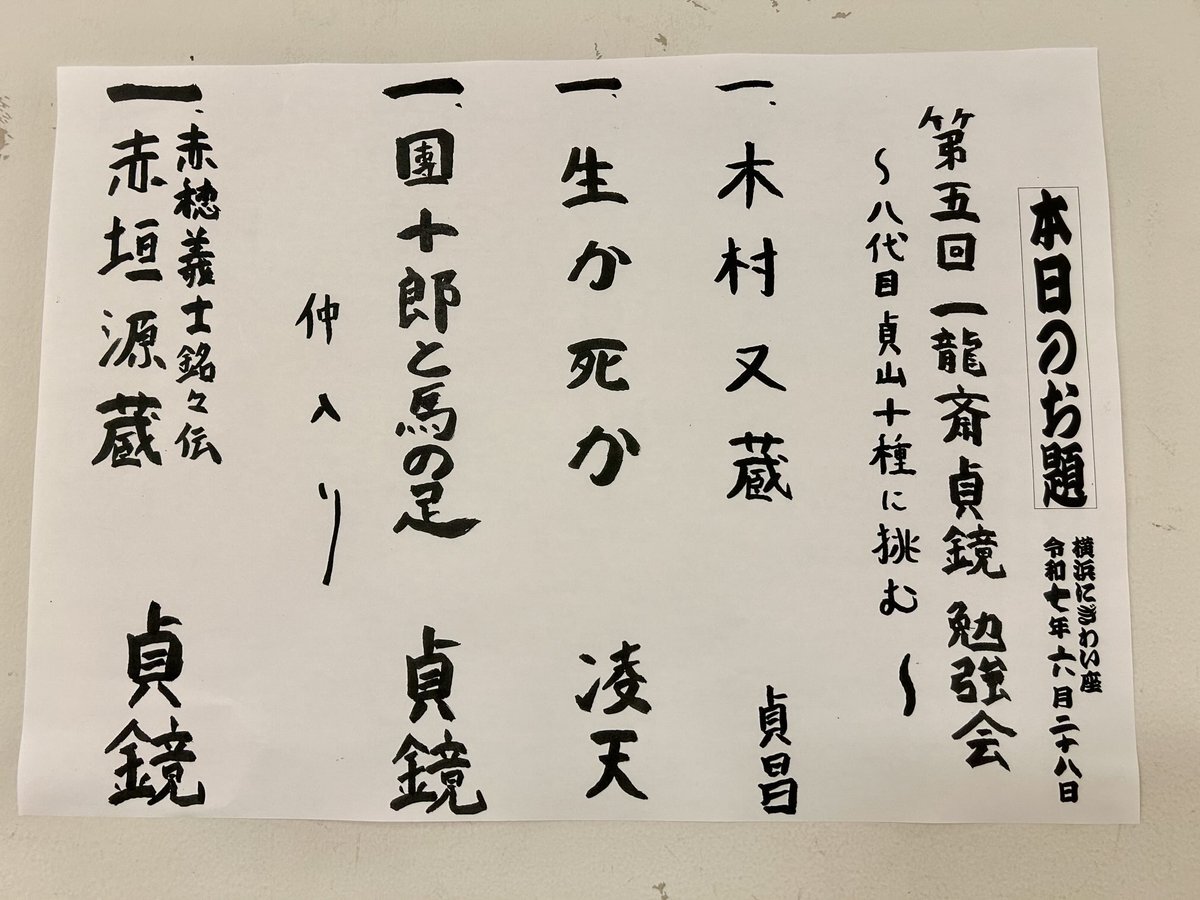 本日のお題
横浜にぎわい座
令和七年六月二十八日
第五回 一龍斎貞鏡 勉強会
〜八代目貞山十種に挑む〜
一、木村又蔵 貞昌
一、生か死か 凌天
一、團十郎と馬の足 貞鏡
仲入り
一、赤穂義士銘々伝
赤垣源蔵 貞鏡